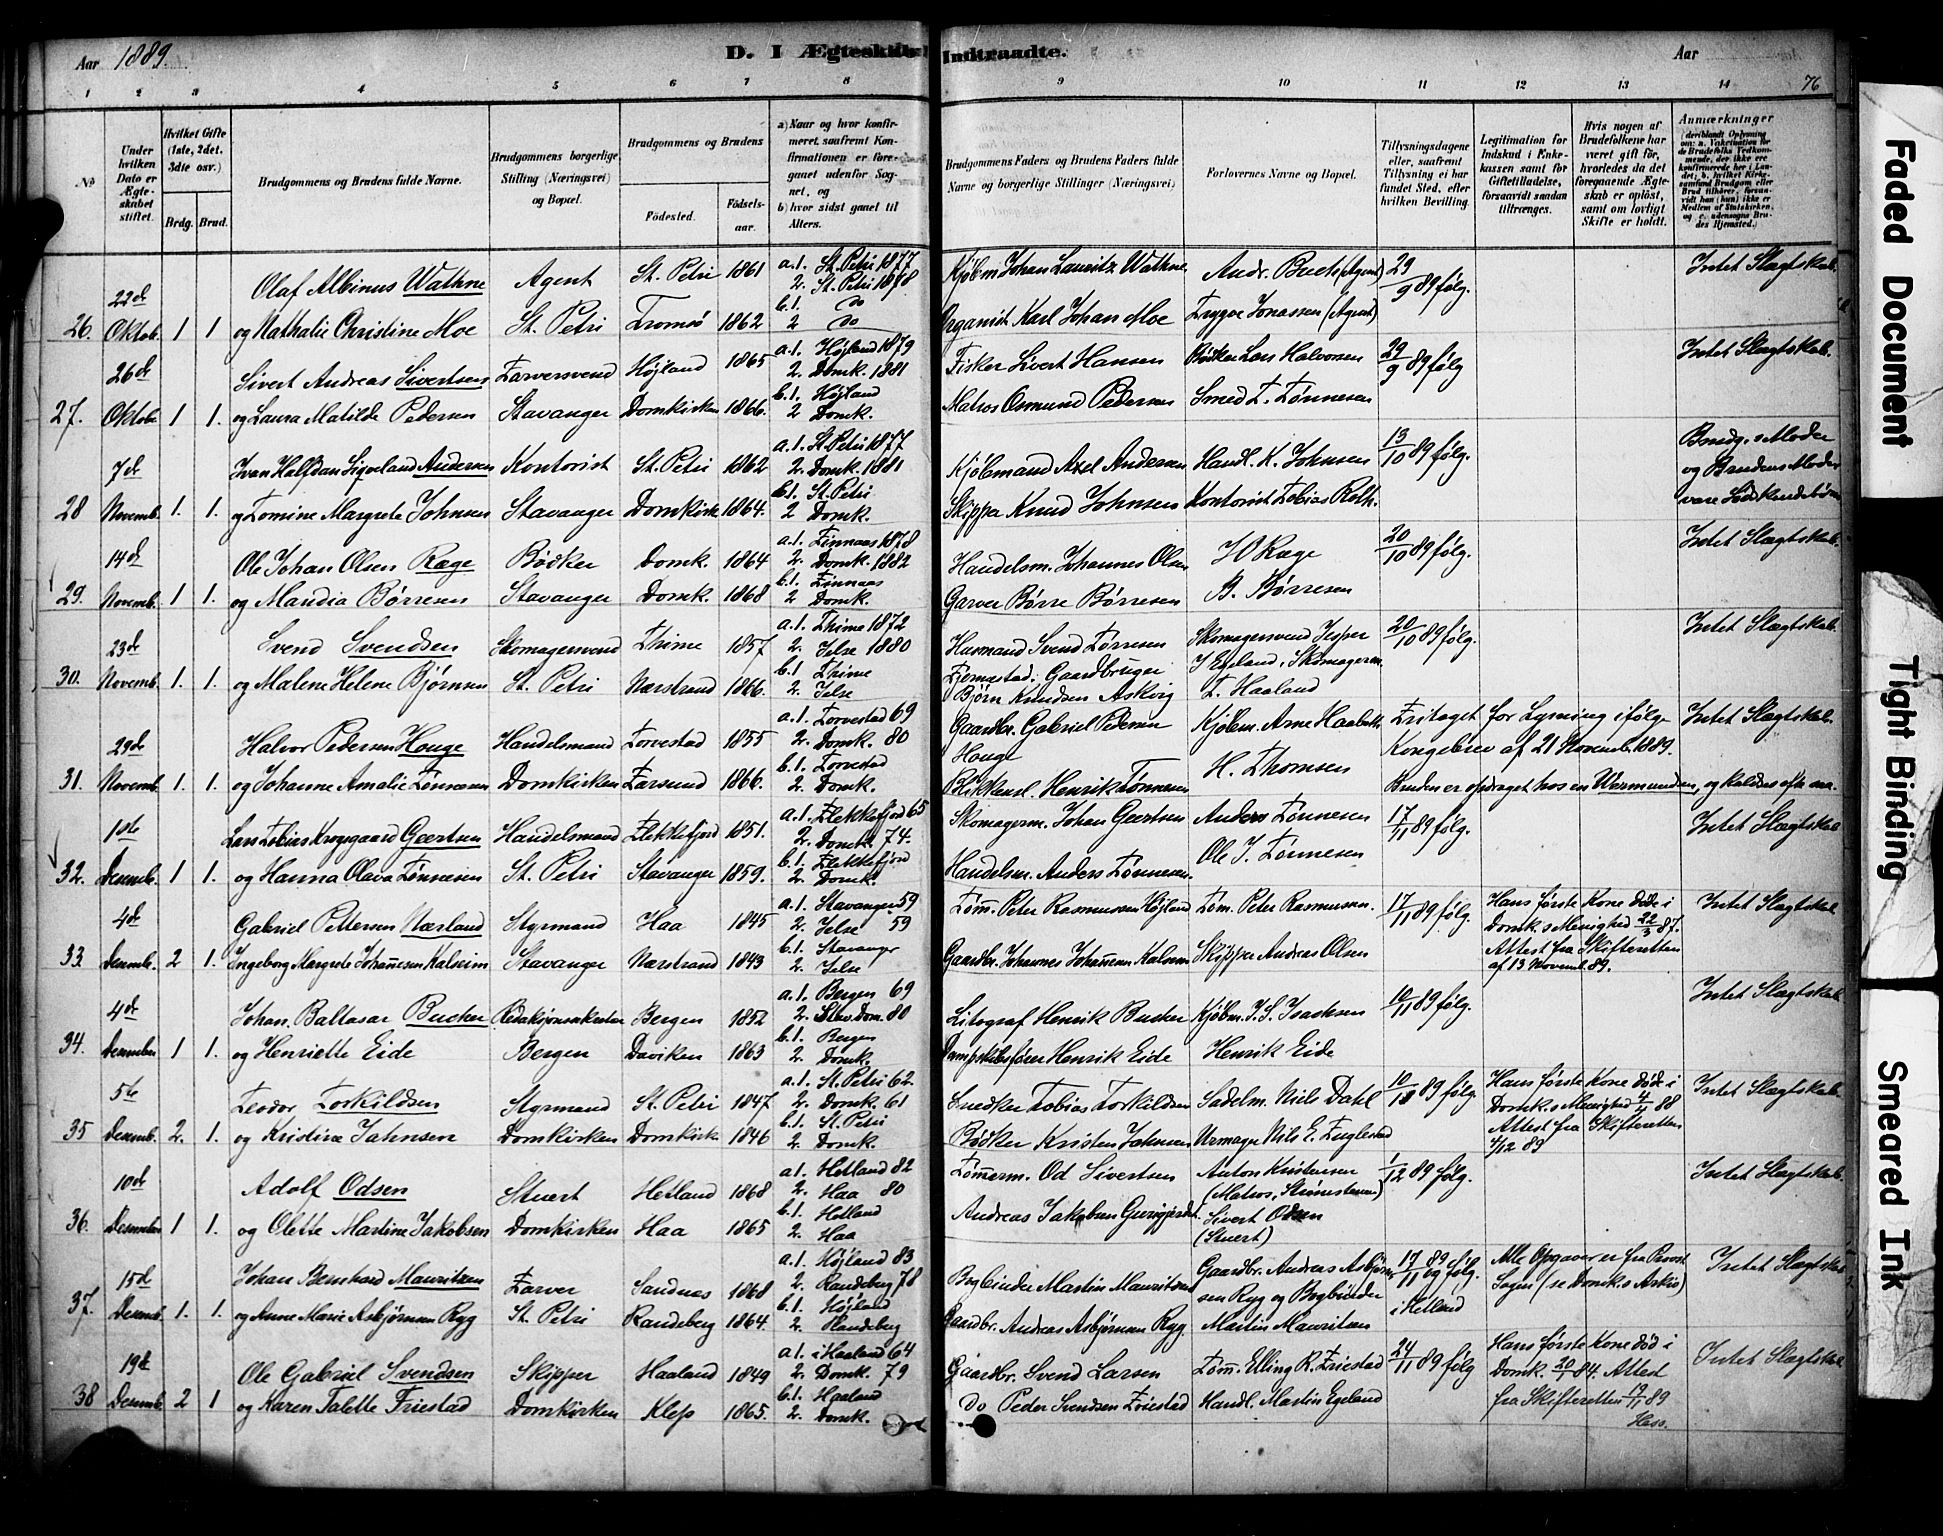 Aar 1889.
D. I Ægteskab Indtraadte.
Aar
76
1 2 3 4 5 6 7 8 9 10 11 12 13 14
No
Under hvilken Dato er Ægteskabet stiftet.
Hvilket Gifte (1ste, 2det, 3die osv.)
Brdg. Brud.
Brudgommens og Brudens fulde Navne.
Brudgommens borgerlige Stilling (Næringsvei) og Bopæl.
Brudgommens og Brudens
Födested. Födsels-aar.
a) Naar og hvor konfirmeret, saafremt Konfirmationen er foregaaet udenfor Sognet, og
b) hvor sidst gaaet til Alters.
Brudgommens Faders og Brudens Faders fulde Navne og borgerlige Stillinger (Næringsvei)
Forlovernes Navne og Bopæl.
Tillysningsdagene eller, saafremt Tillysning ei har fundet Sted, efter hvilken Bevilling.
Legitimation for Indskud i Enkekassen samt for Giftetilladelse, forsaavidt saadan tiltrænges.
Hvis nogen af Brudefolkene har været gift før, hvorledes da det foregaaende Ægteskab er opløst, samt om lovligt Skifte er holdt.
Anmærkninger
26. 22de Oktob. 1 1 Olaf Albinus Wathne Agent St. Petri 1861 a.1. St. Petri 1877 2. St. Petri 1878 Kjøbm. Johan Lauritz Wathne Andr. Buch (Agent) 29/9 89 følg. Intet Slægtskab.
og Nathalie Christine Moe St. Petri Tromsö 1862 b.1. do 2 do Organist Karl Johan Moe Trygve Jonassen (Agent)
27. 26de Oktob. 1 1. Sivert Andreas Sivertsen Farversvend Højland 1865 a.1. Højland 1879 2. Domk. 1881 Fisker Sivert Hansen Bødker Lars Halvorsen 29/9 89 følg Intet Slægtskab.
og Laura Matilde Pedersen Stavanger Domkirken 1866. b.1. Højland 2 Domk. Matros Osmund Pedersen Smed T. Tønnesen
28 7de Novemb. 1. 1. Ivan Halfdan Sigveland Andersen Kontorist St. Petri 1862 a.1. St. Petri 1877 2. Domk. 1881 Kjøbmand Axel Andersen Handl. K. Johnsen 13/10 89 følg. Brudg.s Moder og Brudens Moder vare Sødskendebørn
og Tomine Margrete Johnsen Stavanger Domkirke 1864. b.1. St. Petri 2 Domk. Skipper Knud Johnsen Kontorist Tobias Roth.
29. 14de Novemb. 1 1. Ole Johan Olsen Ræge Bødker Domk. 1864 a.1. Finnaas 1878 2. Domk. 1882 Handelsm. Johannes Olsen 20/10 89 følg. Intet Slægtskab.
og Mandia Börresen Stavanger Domk. 1868 b.1. Finnaas 2 Domk. Garver Börre Börresen B. Börresen
30. 23de Novemb. 1. 1. Svend Svendsen Skomagersvend Thime 1857 a.1. Thime 1872 2. Jelse 1880 Husmand Svend Tørresen Skomagersvend Jesper 20/10 89 følg. Intet Slægtskab.
og Malene Helene Bjørnsen St. Petri Nærstrand 1866. b.1 Thime 2. Jelse Gaardbruger Björn Knudsen Askvig J Egeland, Skomagerm. T. Haaland
31. 29de Novemb. 1. 1. Halvor Pedersen Houge Handelsmand Torvestad 1855 a.1. Torvestad 69 2. Domk. 80 Gaardbr. Gabriel Pedersen Houge Fritaget for Lysning ifølge Kongebrev af 21 Novemb. 1889. Intet Slægtskab.
og Johanne Amalie Tønnesen Domkirken Farsund 1866. b.1. Torvestad 2. Domk. Blikkensl. Henrik Tönnesen H. Thomsen
32. 18te Desemb. 1 1. Lars Tobias Krogsgaard Geertsen Handelsmand Flekkefjord 1851. a.1. Flekkefjord 65 2. Domk. 74. Skomagerm. Johan Geertsen Anders Tønnesen 17/11 89 følg. Intet Slægtskab
og Hanna Olava Tønnesen St. Petri Stavanger 1859. b.1. Flekkefjord 2. Domk. Handelsm. Anders Tønnesen. Ole J. Tønnesen
33. 4de Desemb. 2 1. Gabriel Pettersen Nærland Styrmand Haa 1845 a.1. Stavanger 59 2. Jelse 59 Tøm. Peter Rasmussen Højland Tøm. Peter Rasmusen. 17/11 89 følg. Hans første Kone døde i Domk.s Menighed 22/3 87. Attest fra Skifteretten af 13 Novemb. 89. Intet Slægtskab
Ingeborg Margrete Johannesen Kalseim Stavanger Nærstrand 1843 b.1. Stavanger 2. Jelse Gaardbr. Johannes Johannesen Kalseim Skipper Andreas Olsen
34. 4de Desember 1 1. Johan Baltasar Bucher Redaktionssekretær Bergen 1852 a.1. Bergen 69 2. Stav. Dom. 80 Litograf Henrik Bucher Kjøbm. J. S. Isachsen 10/11 89 følg. Intet Slægtskab
og Henriette Eide Bergen Daviken 1863 b.1. Bergen 2. Domk. Dampskibsfører Henrik Eide Henrik Eide
35 5te Desemb. 2. 1 Teodor Torkildsen Styrmand St. Petri 1847 a.1. St. Petri 62 2. Domk. 61 Snedker Tobias Torkildsen Sadelm. Niels Dahl Hans første Kone døde i Domk.s Menighed 4/4 88 Attest fra Skifteretten 4/12 89 Intet Slægtskab.
og Kristine Jahnsen Domkirken Domkirk 1846 b.1. St. Petri 2. Domk. Bødker Kristen Jahnsen Urmager Nils E. Fuglestad
36. 10de Desember 1 1. Adolf Odsen Stuert Hetland 1868 a1. Hetland 82 2. Haa 80 Tømerm. Od Sivertsen Anton Kristensen 1/12 89 følg. Intet Slægtskab.
og Olette Martine Jakobsen Domkirken Haa 1865 b.1. Hetland 2. Haa Andreas Jakobsen Sivert Odsen (Stuert)
37. 15de Desemb. 1. 1. Johan Bernhard Mauritzen Farver Sandnæs 1868 a.1. Højland 83 2. Randeberg 78 Bogbinder Martin Mauritzen Gaardbr. Andreas Asbjørnsen Ryg og Bogbinder Martin Mauritzen 17/11 89 og følg. i Hetland Alle Opgaver er fra Provst Intet Slægtskab
og Anne Marie Asbjørnsen Ryg St. Petri Randeberg 1864. b.1. Højland 2. Randeberg Gaardbr. Andreas Asbjørnsen Ryg.
38 19de Desemb. 2 1 Ole Gabriel Svendsen Skipper Haaland 1849 a1. i Haaland 64 2. Domk. 79 Gaardbr. Svend Larsen Tøm. Elling R. Friestad 24/11 89 følg Hans første Kone død i Domk. 20/1 84. Attest fra Skifteretten 19/11 89 Intet Slægtskab
og Karen Talette Friestad Domkirken Klep 1865. b.1. Haaland 2. Domk. Do Peder Svendsen Friestad Handl. Martin Egeland
Faded Document
Tight Binding
Smeared Ink